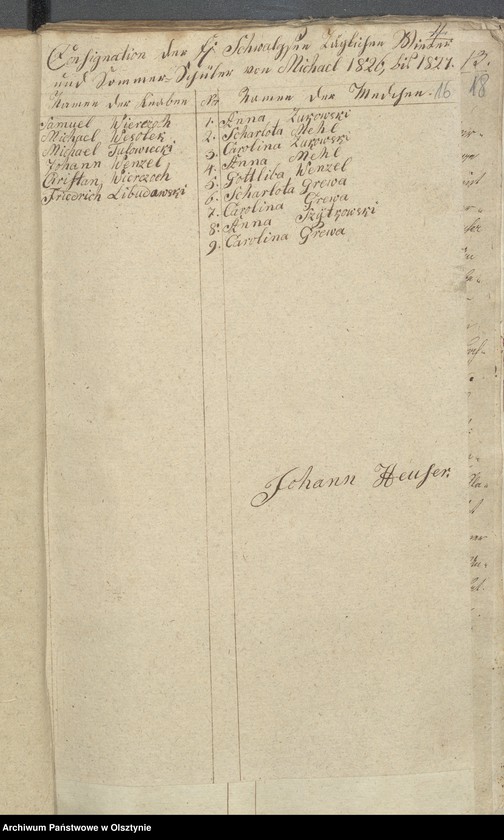 4
Consignation der Schwalgsen Züglichen Winter
und Sommer Schüler von Michael 1826, bis 1827.
13.
16
18
Namen der Knaben
Samuel Wierczoch
Michael Westler
Michael Jutowiecki
Johann Wenzel
Cristian Wierczoch
Friedrich Libudowski
No Namen der Medchen.
1. Anna Zukowski
2. Scharlota Mehl
3. Carolina Zukowski
4. Anna Mehl
5. Gottliba Wenzel
6. Scharlota Grewa
7. Carolina Grewa
8. Anna Szÿtkowski
9. Carolina Grewa
Johann Heuser
Archiwum Państwowe w Olsztynie